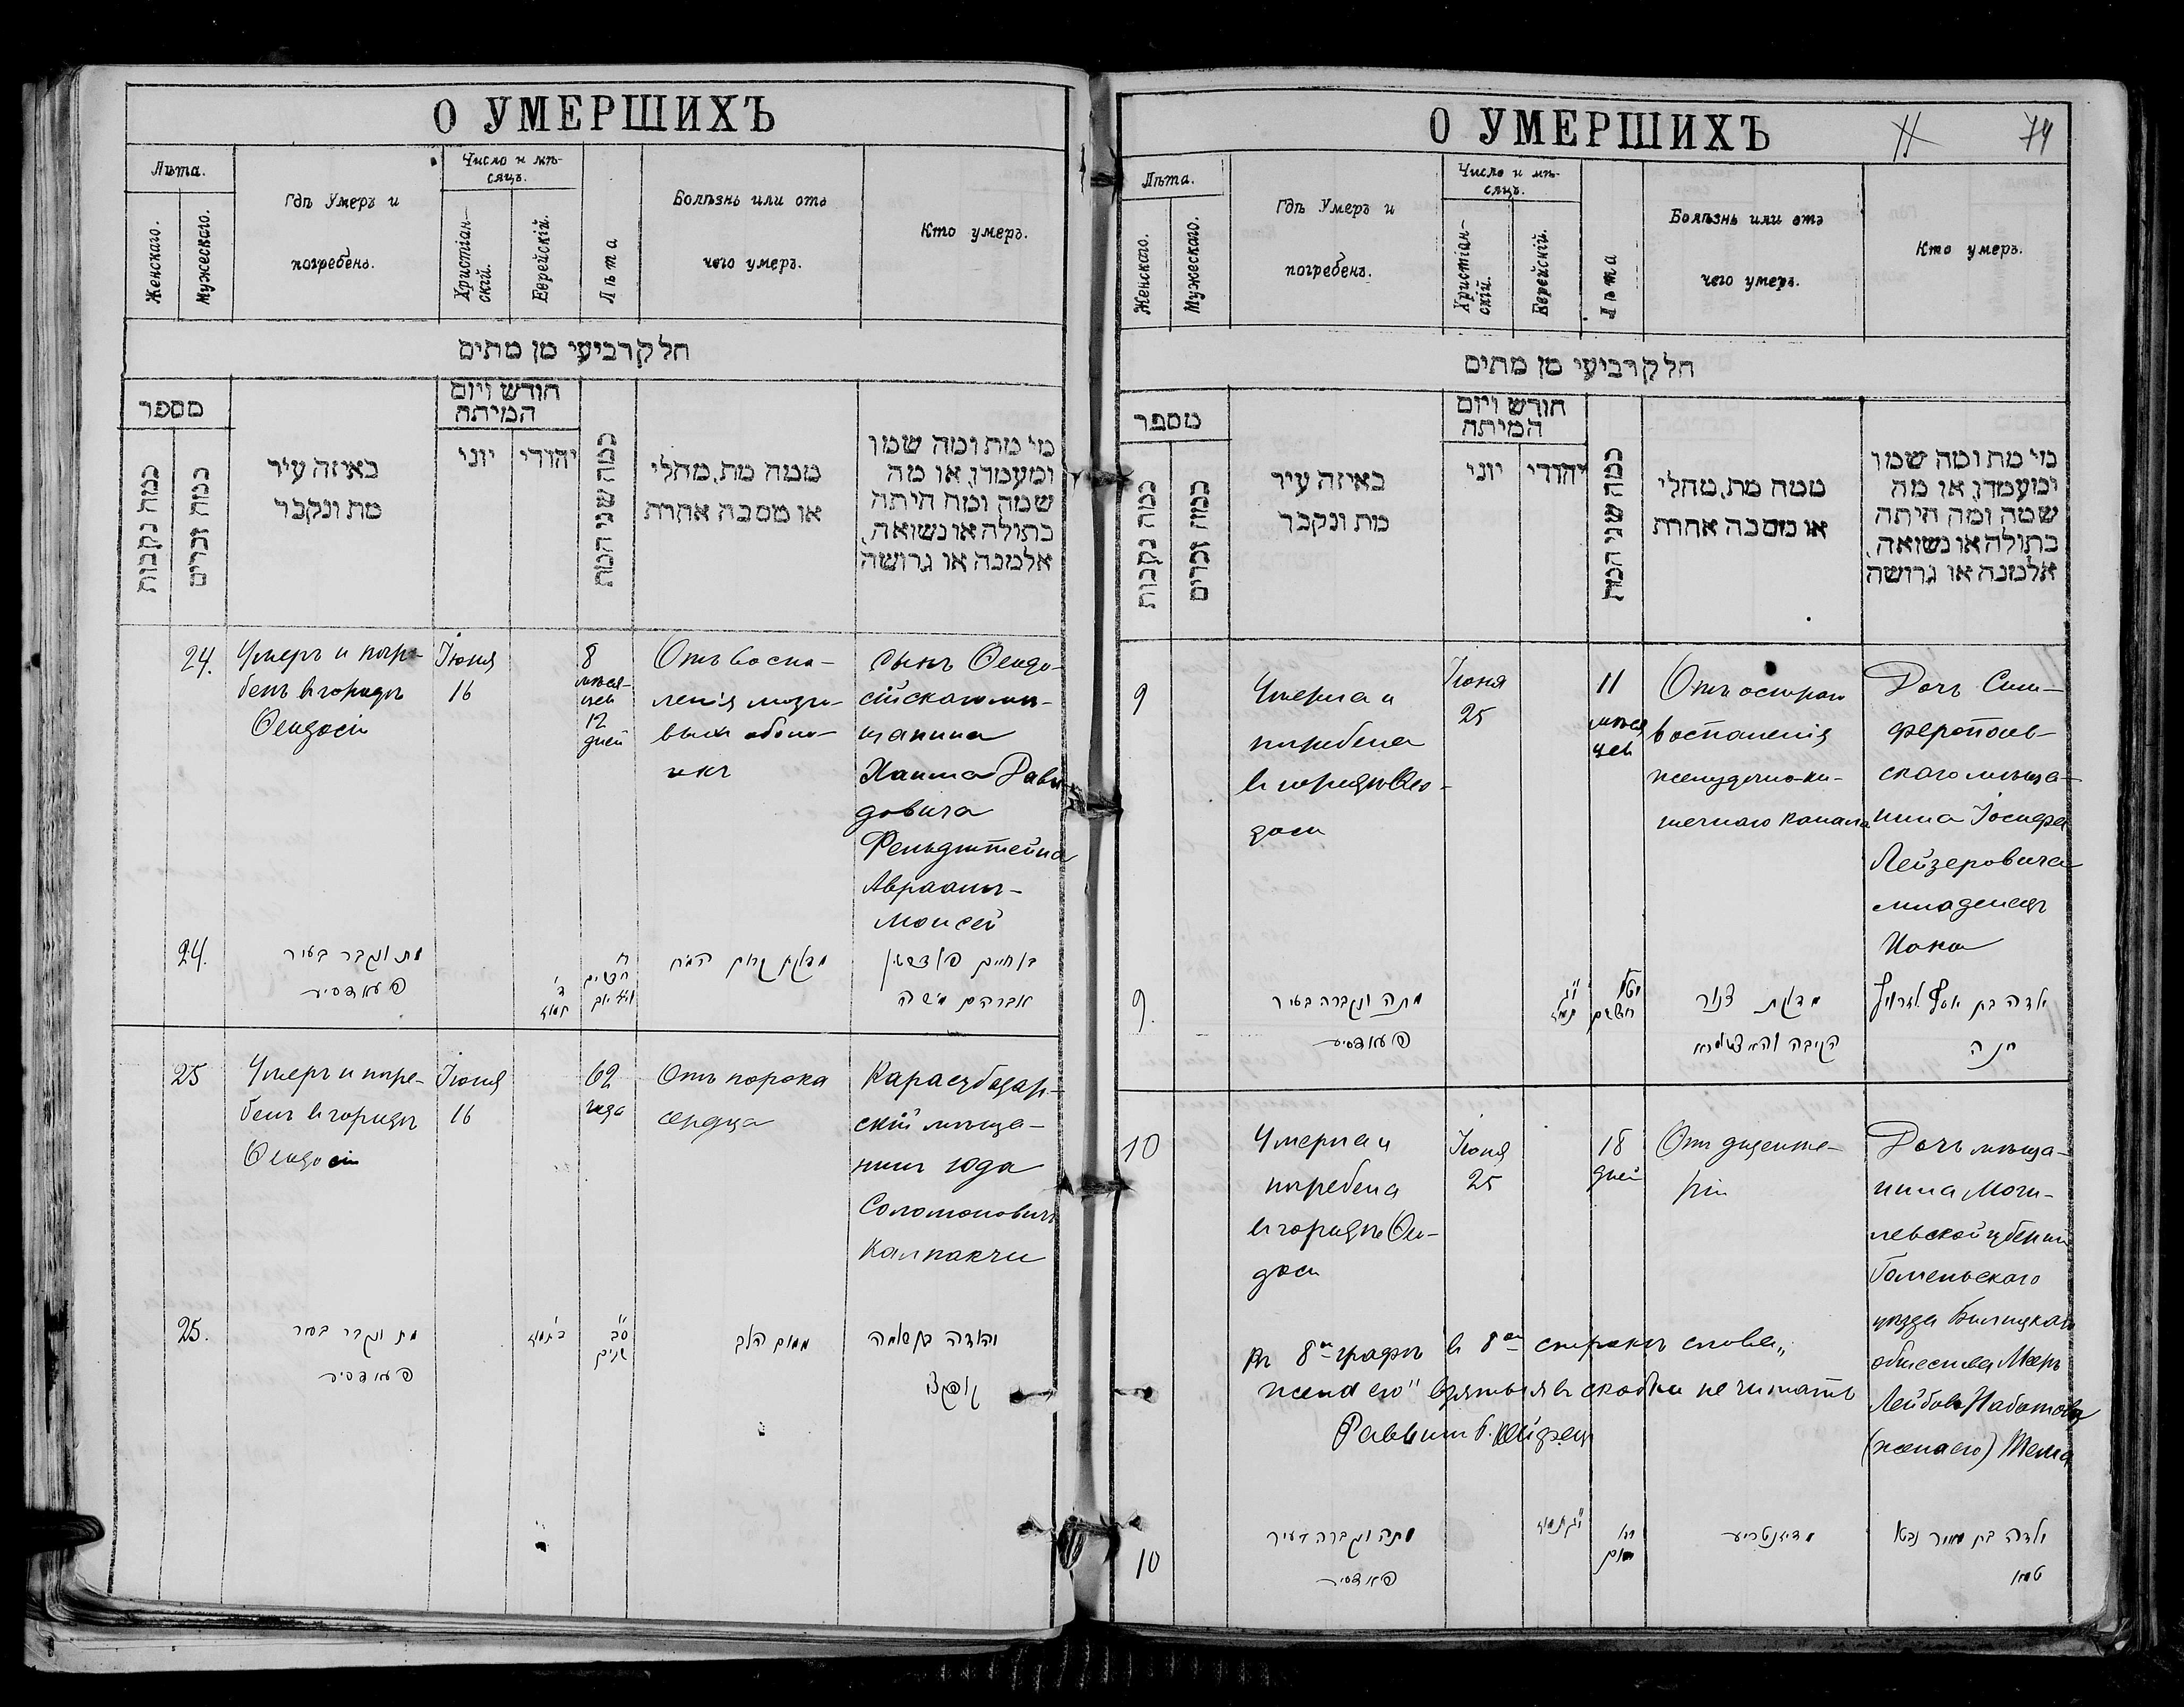 О УМЕРШИХЪ
Лѣта.
Женскаго.
Мужескаго.
Гдѣ Умеръ и
погребенъ.
Число и мѣ-
сяцъ.
Христіан-
скій.
Еврейскій.
Лѣта
Болѣзнь или отъ
чего умеръ.
Кто умеръ.
חלק רביעי מן מתים
מספר
כמה נקבות
כמה זכרים
באיזה עיר
מת ונקבר
חודש ויום
המיתה
יוני
יהודי
כמה שני המת
ממה מת, מחלי
או מסבה אחרת
מי מת ומה שמו
ומעמדו, או מה
שמה ומה היתה
בתולה או נשואה,
אלמנה או גרושה
24.
Умеръ и погре-
бенъ въ городѣ
Ѳеодосіи
Іюня
16
8
мѣся-
цев
12
дней
Отъ воспа-
ленія мозго-
выхъ оболо-
чекъ
Сынъ Ѳеодо-
сійскаго мѣ-
щанина
Хаима Дави-
довича
Фельдштейна
Авраамъ-
Моисей
24.
מת ונקבר בעיר
פעאדסיע
ח
חדשים
אברהם משה
25
Умеръ и погре-
бенъ въ городѣ
Ѳеодосіи
Іюня
16
62
года
Отъ порока
сердца
Карасубазар-
скій мѣща-
нинъ Юда
Соломоновичъ
Калпакчи
25.
מת ונקבר בעיר
פעאדסיע
סב
שנים
ממום הלב
יהודה בן שלמה
О УМЕРШИХЪ
11
74
Лѣта.
Женскаго.
Мужескаго.
Гдѣ Умеръ и
погребенъ.
Число и мѣ-
сяцъ.
Христіан-
скій.
Еврейскій.
Лѣта
Болѣзнь или отъ
чего умеръ.
Кто умеръ.
חלק רביעי מן מתים
מספר
כמה נקבות
כמה זכרים
באיזה עיר
מת ונקבר
חודש ויום
המיתה
יוני
יהודי
כמה שני המת
ממה מת, מחלי
או מסבה אחרת
מי מת ומה שמו
ומעמדו, או מה
שמה ומה היתה
בתולה או נשואה,
אלמנה או גרושה
9
Умерла и
погребена
въ городѣ Ѳео-
досіи
Іюня
25
11
мѣся
цев
Отъ остраго
воспаленія
желудочно-ки-
шечнаго канала
Дочь Сим-
ферополь-
скаго мѣща-
нина Іосифа
Лейзеровича
младенецъ
Хана
9.
מתה ונקברה בעיר
פעאדסיע
חדשים
ילדה בת יוסף
חנה
10
Умерла и
погребена
въ городѣ Ѳео-
досіи
Іюня
25
18
дней
Отъ дизенте-
ріи
Дочь мѣща-
нина Моги-
левской губерніи
Гомельскаго
уѣзда Бѣлицкаго
общества Меера
Лейбова Наботова
(жена его) Тема
въ 8й графѣ въ 8й строкѣ слова „
жена его" взятыя въ скобки не читать
Раввинъ
10
מתה ונקברה בעיר
פעאדסיע
חי
יום
מדיזנטריע
ילדה בת מאיר